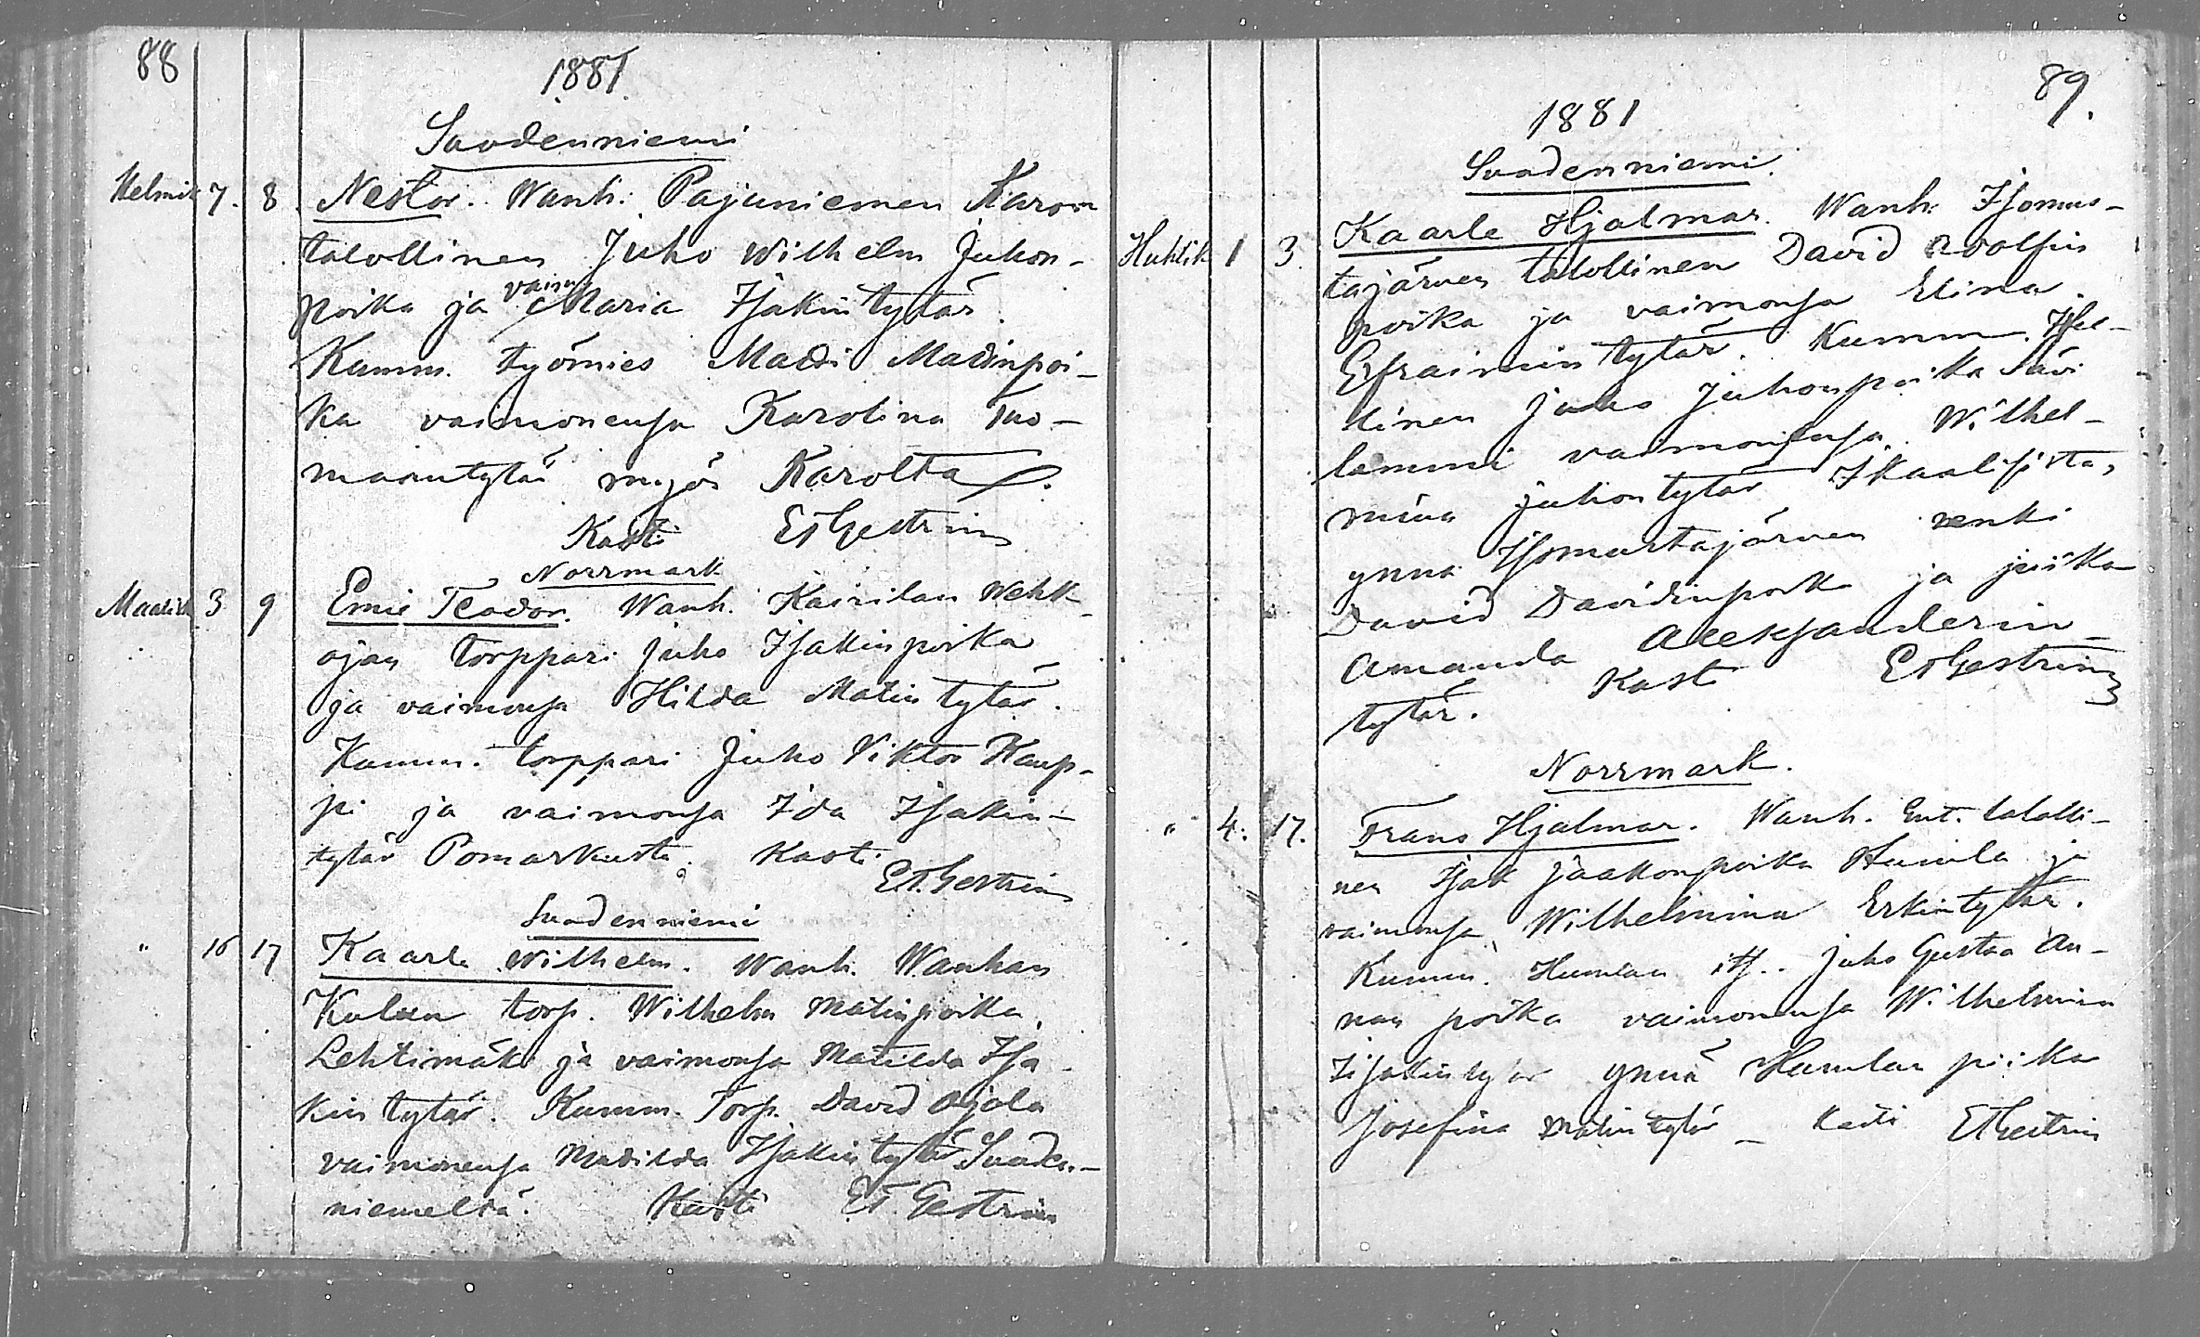 88
1881
Suodenniemi
Helmik 7. 8. Nestor. Wanh. Pajuniemen Karon
talollinen Juho Wilhelm Juhon-
poika ja vaim. Maria Isakintytär.
Kumm. työmies Matti Matinpoi-
ka vaimonensa Karolina Tuo-
maantytär myös Karolta.
Kasti EtGestrin
Norrmark
Maalisk 3 9 Emil Teodor. Wanh. Kairilan Wehk-
ojan torppari Juho Isakinpoika
ja vaimonsa Hilda Matintytär.
Kumm. torppari Juho Viktor Kaup-
pi ja vaimonsa Ida Isakin-
tytär Pomarkusta. Kasti
Et.Gestrin
Suodenniemi
" 16 17 Kaarle Wilhelm. Wanh. Wanhan
torp. Wilhelm Matinpoika
Lehtimäki ja vaimonsa Matilda Isa-
kintytär. Kumm. Torp. David Ojala
vaimonensa Matilda Isakintytär Suoden-
niemeltä. Kasti Et. Gestrin
89.
1881
Suodenniemi.
Huhtik 1 3. Kaarle Hjalmar. Wanh. Isomus-
tajärven talollinen David Adolfin
poika ja vaimonsa Elina
Efraimintytär. Kumm. Itsel-
linen Juho Juhonpoika Sävi
lammi vaimonensa Wilhel-
miina Juhontytär Ikaalisista,
ynnä Isomustajärven renki
David Davidinpoik ja piika
Amanda Aleksanderin-
tytär. Kast EtGestrin
Norrmark.
" 4. 17. Frans Hjalmar. Wanh. Ent. talolli-
nen Isak Jaakonpoika Humla ja
vaimonsa Wilhelmina Erkintytär.
Kumm. Humlan its. Juho Gustaa An-
nan poika vaimonensa Wilhelmina
Iisakintytär ynnä Humlan piika
Josefina Matintytär - Kasti EtGestrin